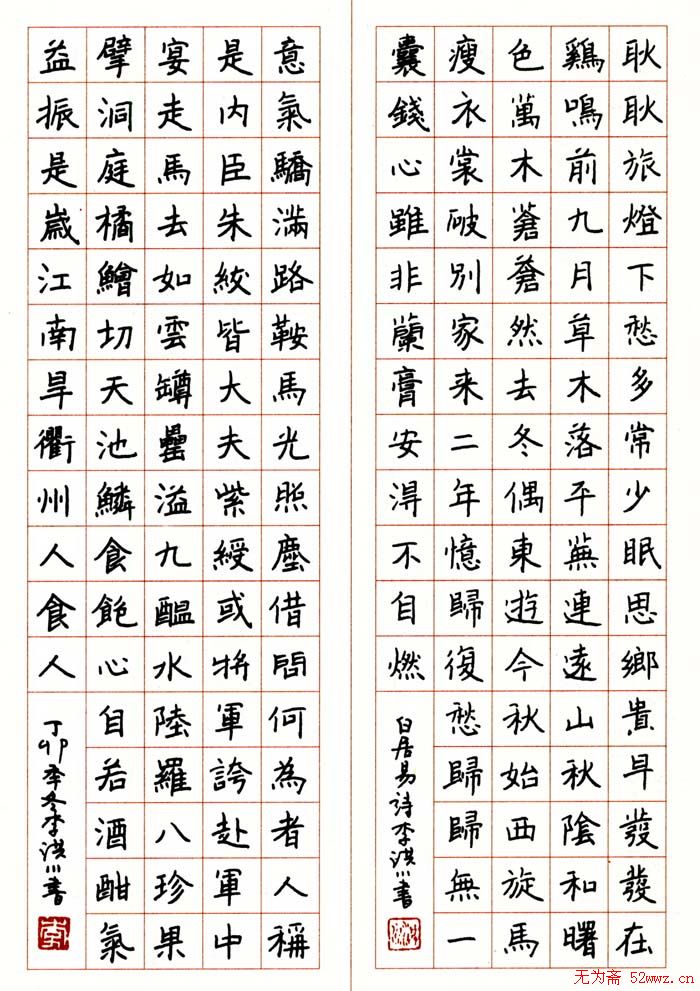 耿耿旅燈下愁多常少眠思鄉貴早發發在
鷄鳴前九月草木落平蕪連遠山秋陰和曙
色萬木蒼蒼然去冬偶東遊今秋始西旋馬
瘦衣裳破別家来二年憶歸復愁歸歸無一
囊錢心雖非蘭膏安得不自燃
白居易詩李洪川書
意氣驕滿路鞍馬光照塵借問何為者人稱
是内臣朱紱皆大夫紫綬或將軍誇赴軍中
宴走馬去如雲罇罍溢九醖水陸羅八珍果
擘洞庭橘鱠切天池鱗食飽心自若酒酣氣
益振是歲江南旱衢州人食人
丁卯季冬李洪川書
无为斋 52wwz.cn